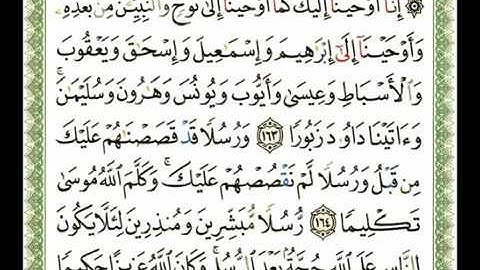 ۞ إِنَّآ أَوْحَيْنَآ إِلَيْكَ كَمَآ أَوْحَيْنَآ إِلَىٰ نُوحٍ وَٱلنَّبِيِّـۧنَ مِنۢ بَعْدِهِۦ
وَأَوْحَيْنَآ إِلَىٰٓ إِبْرَٰهِيمَ وَإِسْمَـٰعِيلَ وَإِسْحَـٰقَ وَيَعْقُوبَ
وَٱلْأَسْبَاطِ وَعِيسَىٰ وَأَيُّوبَ وَيُونُسَ وَهَـٰرُونَ وَسُلَيْمَـٰنَ ۚ
وَءَاتَيْنَا دَاوُۥدَ زَبُورًا ١٦٣ وَرُسُلًا قَدْ قَصَصْنَـٰهُمْ عَلَيْكَ
مِن قَبْلُ وَرُسُلًا لَّمْ نَقْصُصْهُمْ عَلَيْكَ ۚ وَكَلَّمَ ٱللَّهُ مُوسَىٰ
تَكْلِيمًا ١٦٤ رُّسُلًا مُّبَشِّرِينَ وَمُنذِرِينَ لِئَلَّا يَكُونَ
لِلنَّاسِ عَلَى ٱللَّهِ حُجَّةٌۢ بَعْدَ ٱلرُّسُلِ ۚ وَكَانَ ٱللَّهُ عَزِيزًا حَكِيمًا